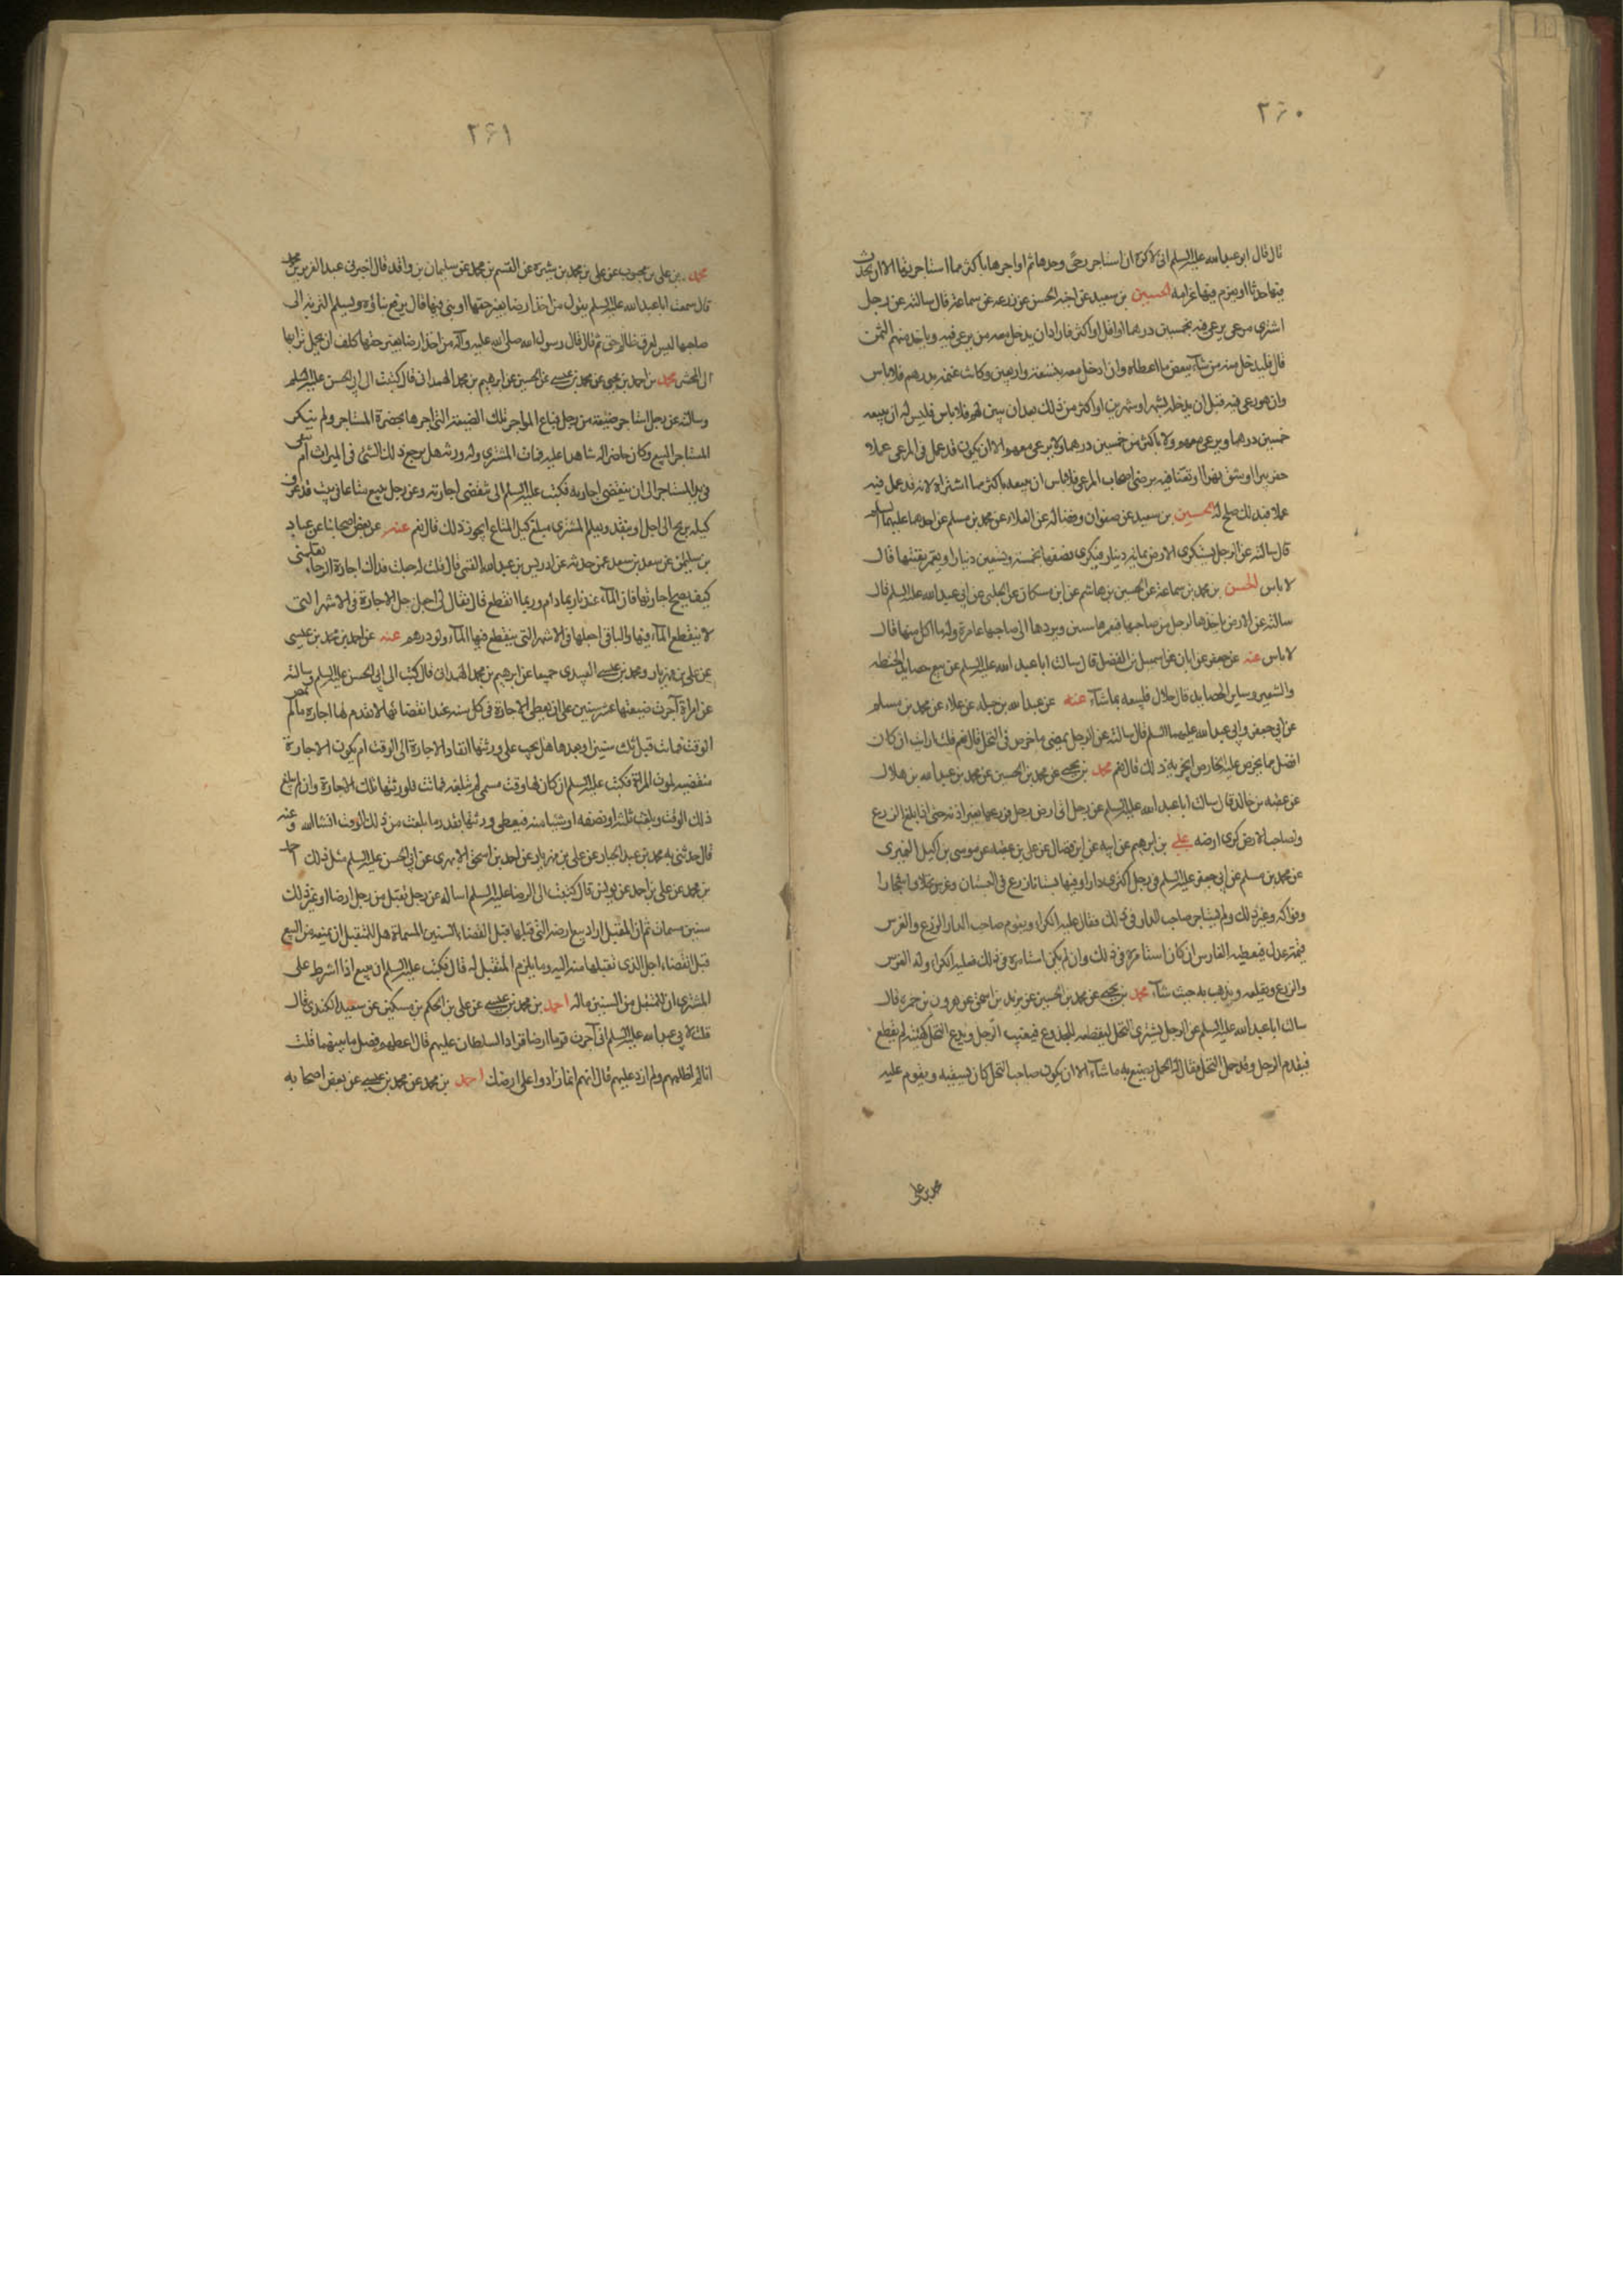 ٢٦٠
قال قال ابو عبد الله عليه السلم انى لاكره ان استاجر رحى وحدها ثم اواجرها باكثر مما استاجرتها الا ان يحدث
فيها حدثا او يغرم فيها غرامه الحسين بن سعيد عن اخيه الحسن عن زرعه عن سماعة قال سالته عن رجل
اشترى مرعى يرعى فيه بخمسين درهما او اقل او اكثر فاراد ان يدخل معه من يرعى فيه وياخذ منهم الثمن
قال فليدخل معه من شآء ببعض ما اعطاه وان ادخل معه بتسعة واربعين وكانت غنمه بدرهم فلا باس
وان هو رعى فيه قبل ان يدخله بشهر او شهرين او اكثر من ذلك بعد ان يبين لهم فلا باس فليس له ان يبيعه
خمسين درهما ويرعى معهم ولا باكثر من خمسين درهما ولا يرعى معهم الا ان يكون قد عمل في المرعى عملا
حفر بيرا او شق نهرا او تعنا فيه برضى اصحاب المرعى فلا باس ان يبيعه باكثر مما اشتراه لانه قد عمل فيه
عملا فبذلك صلح له الحسين بن سعيد عن صفوان وفضاله عن العلاء عن محمد بن مسلم عن احدهما عليهما السلم
قال سالته عن الرجل يستكرى الارض بمائة دينار فيكرى نصفها بخمسة وتسعين دينارا ويعمر بقيتها قال
لا باس الحسن بن محمد بن سماعة عن الحسين بن هاشم عن ابن مسكان عن الحلبى عن ابى عبد الله عليه السلم قال
سالته عن الارض ياخذها الرجل من صاحبها فيعمرها سنين ويردها الى صاحبها عامرة وله ما اكل منها قال
لا باس عنه عن جعفر عن ابان عن اسمعيل بن الفضل قال سالت ابا عبد الله عليه السلم عن بيع حصايد الحنطه
والشعير وساير الحصايد قال حلال فليبعه بما شآء عنه عن عبد الله بن جبله عن علاء عن محمد بن مسلم
عن ابى جعفر وابى عبد الله عليهما السلم قال سالته عن الرجل يمضى ما خرص في النخل قال نعم قلت ارايت ان كان
افضل مما يخرص عليه الخارص ايجزيه ذلك قال نعم محمد بن يحيى عن محمد بن الحسين عن محمد بن عبد الله بن هلال
عن عقبه بن خالد قال سالت ابا عبد الله عليه السلم عن رجل اتى ارض رجل فزرعها بغير اذنه حتى اذا بلغ الزرع
ولصاحب الارض كرى ارضه على بن ابرهيم عن ابيه عن ابن فضال عن على بن عقبه عن موسى بن اكيل النميرى
عن محمد بن مسلم عن ابى جعفر عليه السلم في رجل اكترى دارا وفيها بستانا زرع في البستان وغرس نخلا واشجارا
وفواكه وغير ذلك ولم يستاجر صاحب الدار في ذلك فقال عليه الكراء ويقوم صاحب الدار الزرع والغرس
قيمة عدل فيعطيه الغارس ان كان استامره في ذلك وان لم يكن استامره في ذلك فعليه الكراء وله الغرس
والزرع ويقلعه ويذهب به حيث شآء محمد بن يحيى عن محمد بن الحسين عن يزيد بن اسحق عن هرون بن حمزه قال
سالت ابا عبد الله عليه السلم عن الرجل يشترى النخل ليقطعه للجذوع فيغيب الرجل ويدع النخل كهيئته لم يقطع
فيقدم الرجل وقد حمل النخل فقال له الحمل يصنع به ما شآء الا ان يكون صاحب النخل كان يسقيه ويقوم عليه
محمد بن على
٢٦١
محمد بن على بن محبوب عن على بن محمد بن شيرة عن القسم بن محمد عن سليمان بن واقد قال اخبرنى عبد العزيز بن محمد
قال سمعت ابا عبد الله عليه السلم يقول من اخذ ارضا بغير حقها او بنى فيها قال يرفع بناؤه ويسلم التربة الى
صاحبها ليس لعرق ظالم حق ثم قال قال رسول الله صلى الله عليه وآله من اخذ ارضا بغير حقها كلف ان يحمل ترابها
الى المحشر محمد بن احمد بن يحيى عن محمد بن عيسى عن الحسين عن ابرهيم بن محمد الهمدانى قال كتبت الى ابى الحسن عليه السلم
وسالته عن رجل استاجر ضيعة من رجل فباع المواجر تلك الضيعة التى اجرها بحضرة المستاجر ولم ينكر
المستاجر البيع وكان حاضرا له شاهدا عليه فمات المشترى وله ورثه هل يرجع ذلك الشئ في الميراث ام يبقى
في يد المستاجر الى ان ينقضى اجارته فكتب عليه السلم الى تنقضى اجارته وعن رجل يبيع متاعا في بيت قد عرف
كيله بربح الى اجل او بنقد ويعلم المشترى مبلغ كيل المتاع ايجوز ذلك قال نعم عنه عن بعض اصحابنا عن عباد
بن سليمن عن سعد بن سعد عمن حدثه عن ادريس بن عبد الله القمى قال قلت له جعلت فداك اجارة الارحاء يعلمنى
كيف يصح اجارتها فان المآء عندنا ربما دام وربما انقطع قال فقال لى اجعل جل الاجارة في الاشهر التى
لا ينقطع المآء فيها والباقى اجعلها في الاشهر التى ينقطع فيها المآء ولو درهم عنه عن احمد بن محمد بن عيسى
عن على بن مهزيار ومحمد بن عيسى العبيدى جميعا عن ابرهيم بن محمد الهمدانى قال كتبت الى ابى الحسن عليه السلم وسالته
عن امراة آجرت ضيعتها عشر سنين على ان يعطى الاجارة في كل سنه عند انقضائها لا تقدم لها اجارة ما لم يمض
الوقت فماتت قبل ثلث سنين او بعدها هل يجب على ورثتها انفاذ الاجارة الى الوقت ام يكون الاجارة
منقضيه لموت المراة فكتب عليه السلم ان كان لها وقت مسمى لم تبلغه فماتت فلورثتها تلك الاجارة وان لم تبلغ
ذلك الوقت وبلغت ثلثه او نصفه او شيئا منه فيعطى ورثتها بقدر ما بلغت من ذلك الوقت انشاالله وعنه
قال حدثنى به محمد بن عبد الجبار عن على بن مهزيار عن احمد بن اسحق الابهرى عن ابى الحسن عليه السلم مثل ذلك احمد
بن محمد عن على بن احمد عن يونس قال كتبت الى الرضا عليه السلم اساله عن رجل تقبل من رجل ارضا او غير ذلك
سنين مسمات ثم ان المقبل اراد بيع ارضه التى قبلها قبل انقضاء السنين المسماة هل للمتقبل ان يمنعه من البيع
قبل انقضاء اجل الذى تقبلها منه اليه وما يلزم المتقبل له قال فكتب عليه السلم ان يبيع اذا اشرط على
المشترى ان للمتقبل من السنين ماله احمد بن محمد بن عيسى عن على بن الحكم بن مسكين عن سعيد الكندى قال
قلت لابى عبد الله عليه السلم انى آجرت قوما ارضا فزاد السلطان عليهم قال اعطهم فضل ما بينهما قلت
انا لم اظلمهم ولم ازد عليهم قال انهم انما زادوا على ارضك احمد بن محمد عن محمد بن عيسى عن بعض اصحابه